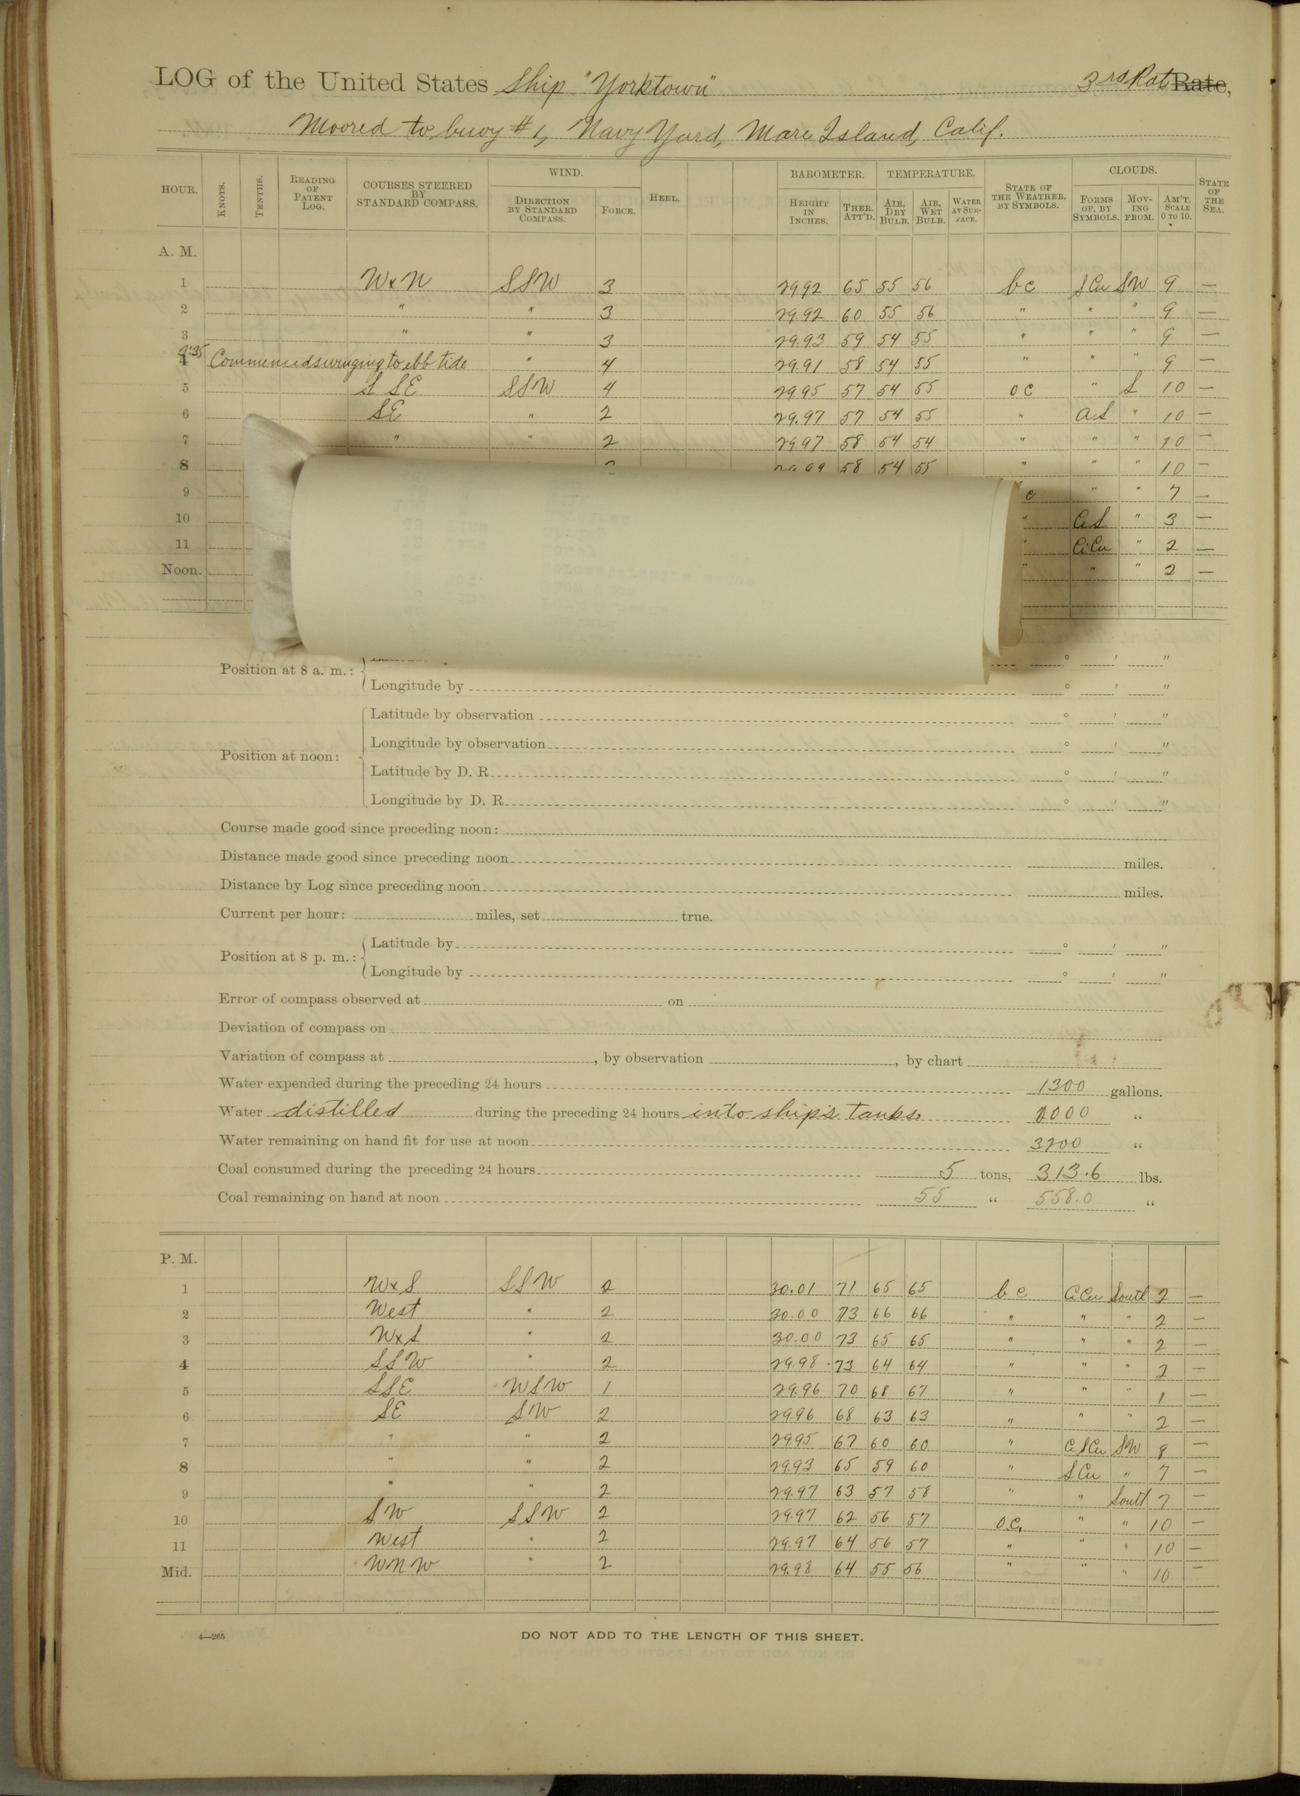 LOG of the United States Ship "Yorktown" 3rd Rate Rate,
Moored to buoy #1, Navy Yard, Mare Island, Calif.
HOUR. KNOTS. TENTHS. READING OF PATENT LOG. COURSES STEERED BY STANDARD COMPASS. WIND. DIRECTION BY STANDARD COMPASS. FORCE. HEEL. BAROMETER. HEIGHT IN INCHES. THER. ATT'D. TEMPERATURE. AIR, DRY BULB. AIR, WET BULB. WATER AT SURFACE. STATE OF THE WEATHER, BY SYMBOLS. CLOUDS. FORMS OF, BY SYMBOLS. MOVING FROM. AM'T. SCALE 0 TO 10. STATE OF THE SEA.
A. M.
1 WxN SSW 3 29.92 65 55 56 bc SCu SW 9 —
2 " " 3 29.92 60 55 56 " " " 9 —
3 " " 3 29.93 59 54 55 " " " 9 —
4 3:35 Commenced swinging to ebb tide " 4 29.91 58 54 55 " " " 9 —
5 SSE SSW 4 29.95 57 54 55 oc " S 10 —
6 SE " 2 29.97 57 54 55 " AS " 10 —
7 " " 2 29.97 58 54 54 " " " 10 —
8 58 54 55 " " " 10 —
9 c " " 7 —
10 " CS " 3 —
11 " CiCu " 2 —
Noon. " " " 2 —
Position at 8 a. m.:
Longitude by ° ' "
Position at noon:
Latitude by observation ° ' "
Longitude by observation ° ' "
Latitude by D. R. ° ' "
Longitude by D. R. ° ' "
Course made good since preceding noon:
Distance made good since preceding noon miles.
Distance by Log since preceding noon miles.
Current per hour: miles, set true.
Position at 8 p. m.:
Latitude by ° ' "
Longitude by ° ' "
Error of compass observed at on
Deviation of compass on
Variation of compass at , by observation , by chart
Water expended during the preceding 24 hours 1300 gallons.
Water distilled during the preceding 24 hours into ship's tanks. 1000 "
Water remaining on hand fit for use at noon 3200 "
Coal consumed during the preceding 24 hours 5 tons, 313.6 lbs.
Coal remaining on hand at noon 55 " 558.0 "
P. M.
1 WxS SSW 2 30.01 71 65 65 bc CiCu South 2 —
2 West " 2 30.00 73 66 66 " " " 2 —
3 WxS " 2 30.00 73 65 65 " " " 2 —
4 SSW " 2 29.98 73 64 64 " " " 2 —
5 SSE WSW 1 29.96 70 68 67 " " " 1 —
6 SE SW 2 29.96 68 63 63 " " " 2 —
7 " " 2 29.95 67 60 60 " SCu SW 8 —
8 " " 2 29.93 65 59 60 " SCu " 7 —
9 " " 2 29.97 63 57 58 " " South 7 —
10 SW SSW 2 29.97 62 56 57 oc. " " 10 —
11 West " 2 29.97 64 56 57 " " " 10 —
Mid. WNW " 2 29.98 64 55 56 " " " 10 —
4—265
DO NOT ADD TO THE LENGTH OF THIS SHEET.